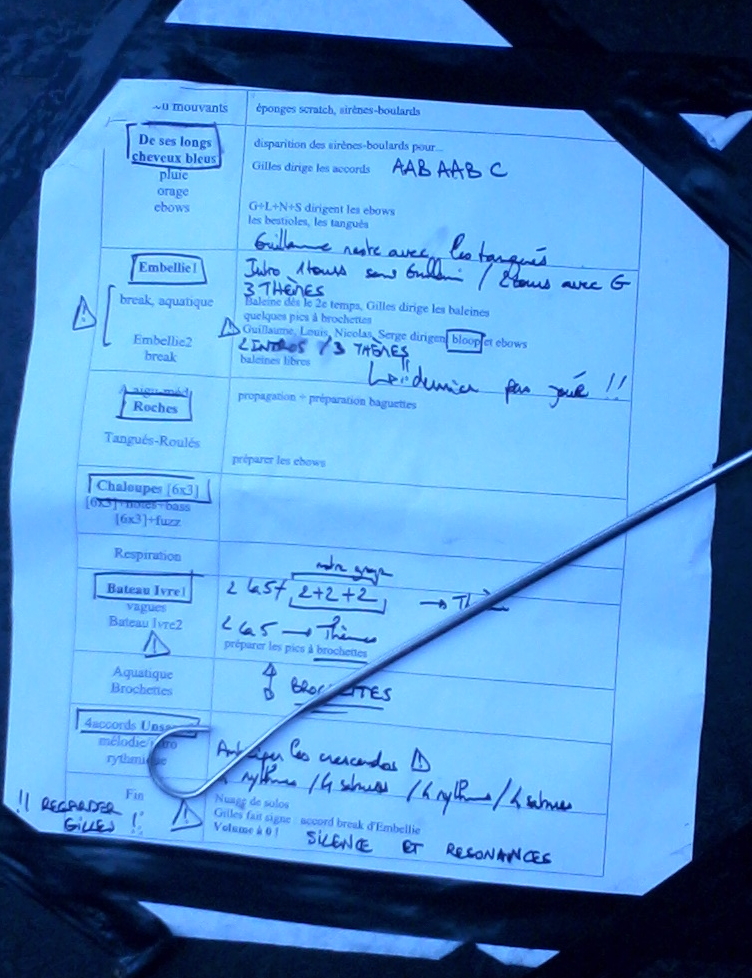 mouvants
éponges scratch, sirènes-boulards
De ses longs
cheveux bleus
pluie
orage
ebows
disparition des sirènes-boulards pour...
Gilles dirige les accords AAB AAB C
G+L+N+S dirigent les ebows
les bestioles, les tangués
Guillaume reste avec les tangués
Embellie1
break, aquatique
Embellie2
break
Intro 1 tours sans Guillaume / 2 tours avec G
3 THÈMES
Baleine dès le 2e temps, Gilles dirige les baleines
quelques pics à brochettes
Guillaume, Louis, Nicolas, Serge dirigent bloop et ebows
2 INTROS / 3 THÈMES
baleines libres
dernier pas joué !!
Roches
Tangués-Roulés
propagation + préparation baguettes
préparer les ebows
Chaloupes [6x3]
[6x3]+notes+bass
[6x3]+fuzz
Respiration
Bateau Ivre1
vagues
Bateau Ivre2
2+2+2
Thèmes
préparer les pics à brochettes
Aquatique
Brochettes
BROCHETTES
4accords
mélodie/
rythmique
Anticiper les crescendos
rythmes / 4 / 4 rythmes / 4
Fin
!! REGARDER
GILLES !!
Nuage de solos
Gilles fait signe accord break d'Embellie
Volume à 0 !
SILENCE ET RESONANCES